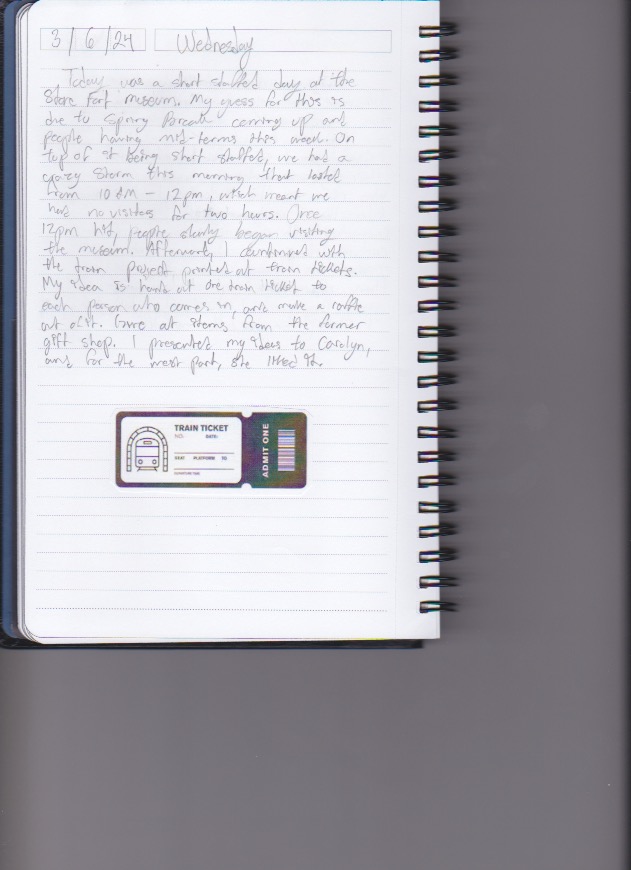 3/6/24 Wednesday
Today was a short staffed day at the
Stone Fort museum. My guess for this is
due to Spring Break coming up and
people having mid-terms this week. On
top of it being short staffed, we had a
crazy storm this morning that lasted
from 10 AM - 12pm, which meant we
had no visitors for two hours. Once
12pm hit, people slowly began visiting
the museum. Afterward, I continued with
the train project printed out train tickets.
My idea is hand out one train ticket to
each person who comes in, and make a raffle
out of it. Give out items from the former
gift shop. I presented my ideas to Carolyn,
and for the most part, she liked it.
TRAIN TICKET
NO: DATE:
SEAT PLATFORM TO
DEPARTURE TIME
ADMIT ONE